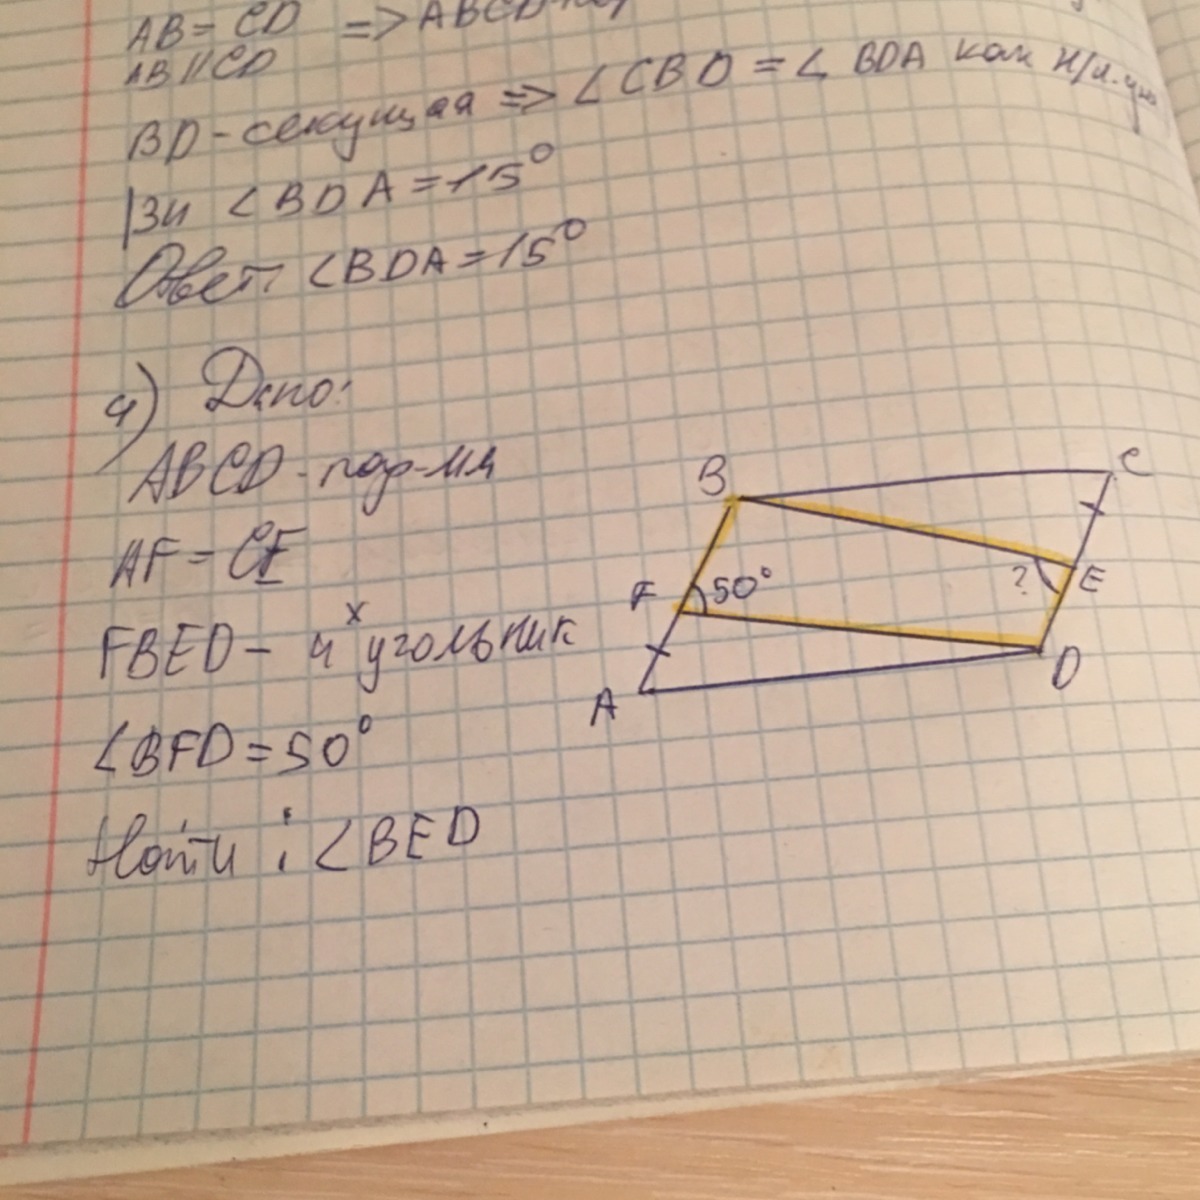 AB = CD => ABCD-пар
AB || CD
BD - секущая => ∠CBD = ∠BDA как н/л.
Зн ∠BDA = 15°
Ответ: ∠BDA = 15°
4) Дано:
ABCD - пар-мм
AF = CE
FBED - 4х угольник
∠BFD = 50°
Найти: ∠BED
B
C
F
50°
?
E
A
D